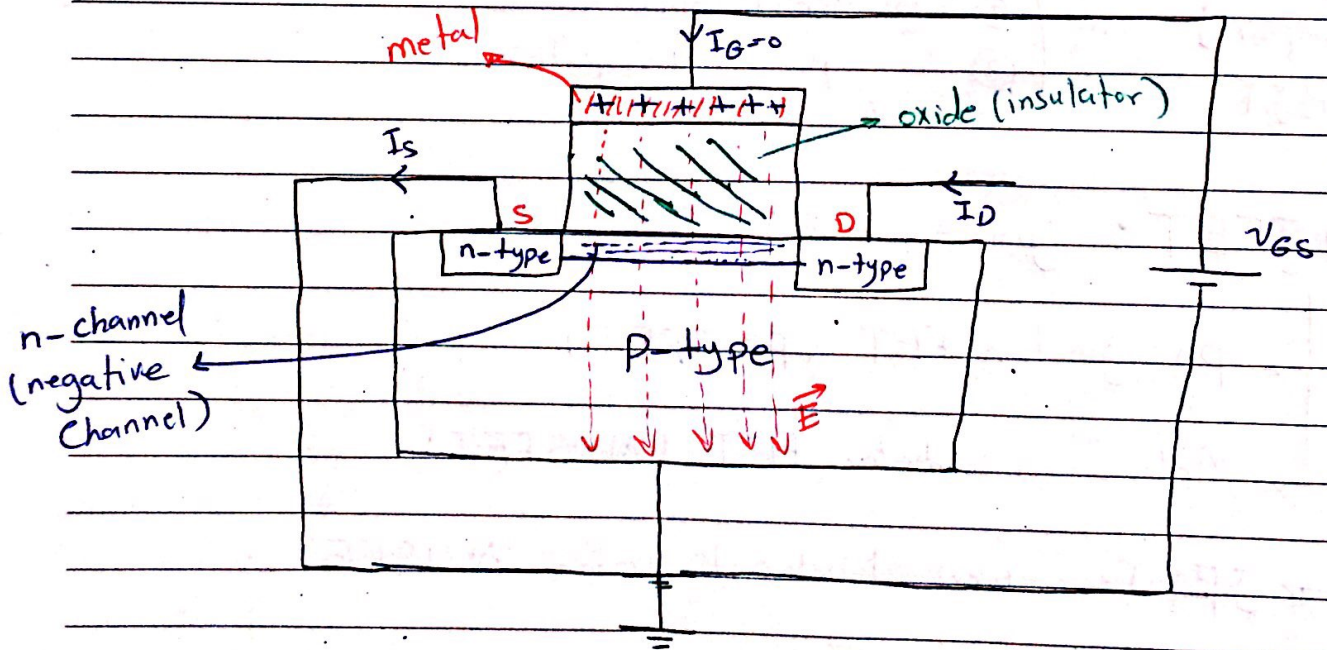 I_G=0
metal
oxide (insulator)
I_S
I_D
S
D
V_GS
n-type
n-type
n-channel
(negative
Channel)
P-type
E